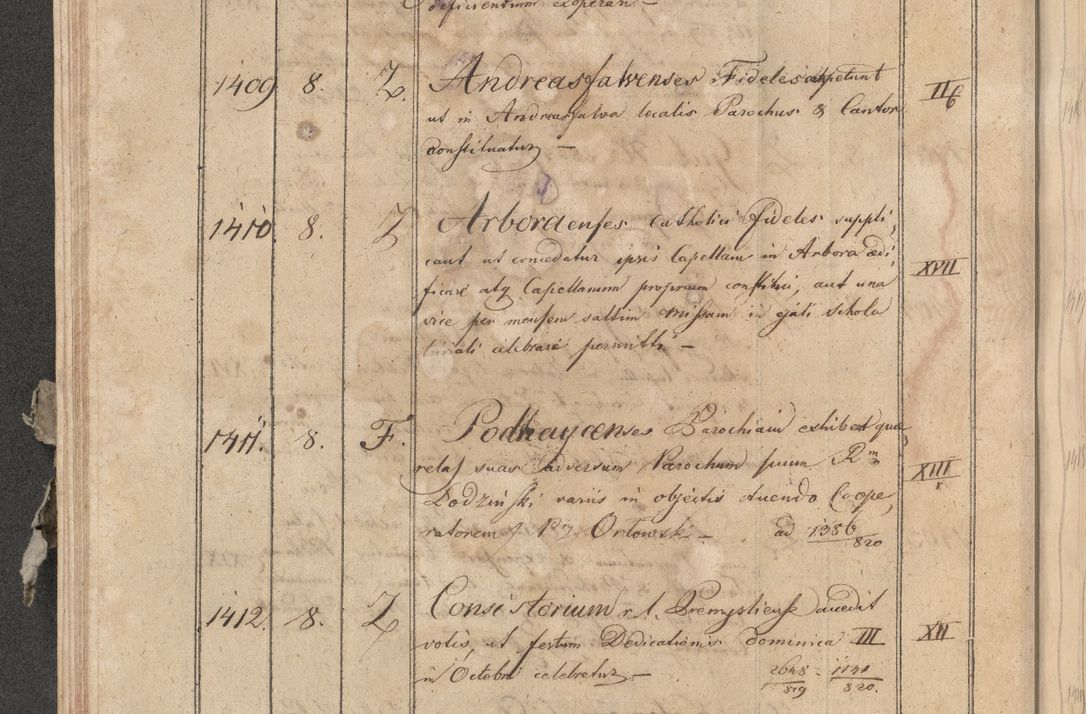 deficientium exoperari. —
1409 8. Z. Andreasfalvenses Fideles expetunt II/6
ut in Andreasfalva localis Parochus & Cantor
constituatur —
1410. 8. Z Arboraenses Catholici fideles suppli,
cant ut concedatur ipsis Capellam in Arbora ædi, XVII
ficare atq Capellanum proprium constitui, aut una
vice per mensem saltim missam in ejati schola
triviali celebrare permitti —
1411. 8. F. Podhaycenses Parochiani exhibent que,
relas suas adversum Parochum suum Rm XIII
Dodziński variis in objectis tuendo Coope,
ratorem Orłowski — ad 1386/820
1412. 8. Z Consistorium r. l. Premysliense accedit
votis, ut festum Dedicationis dominica III XII
in Octobri celebretur. — 2648/819 - 1134/820.